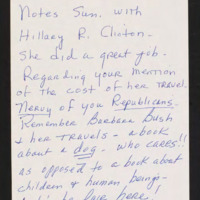 Notes Sun. with
Hillary R. Clinton.
She did a great job.
Regarding your mention
of the cost of her travel.
Nervy of you Republicans.
Remember Barbara Bush
& her travels - a book
about a dog. who cares!!
as opposed to a book about
children & human beings.
here!